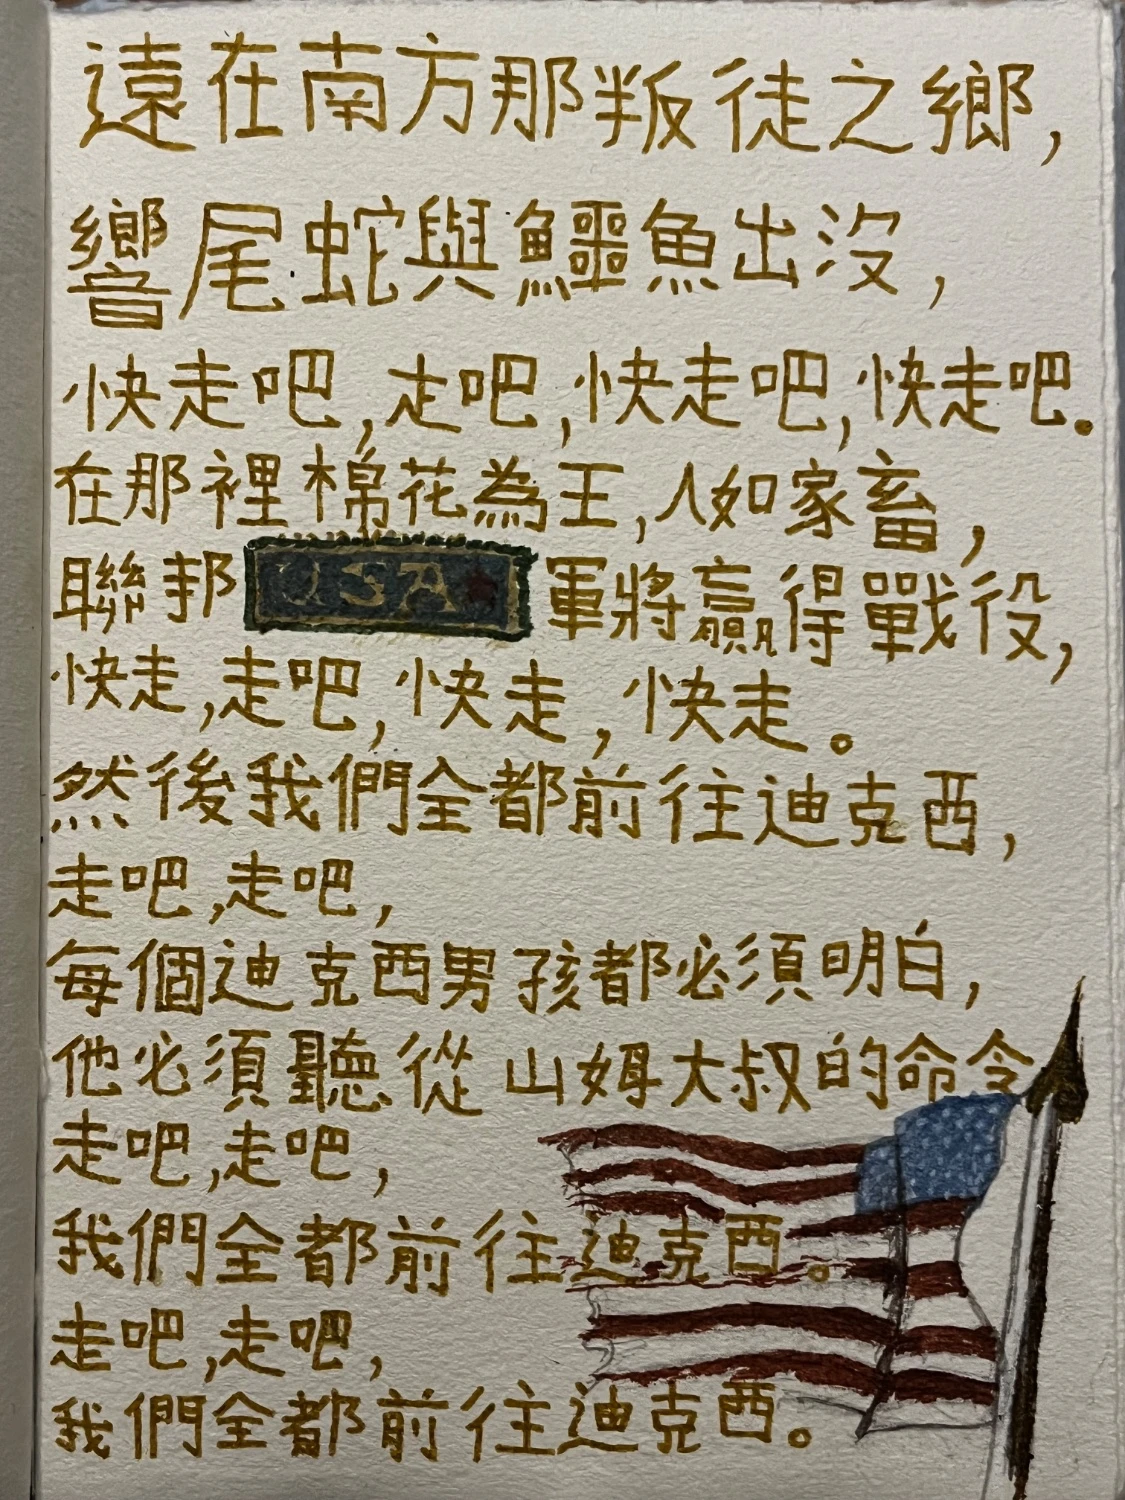 遠在南方那叛徒之鄉，
響尾蛇與鱷魚出沒，
快走吧，走吧，快走吧，快走吧。
在那裡棉花為王，人如家畜，
聯邦 USA 軍將贏得戰役，
快走，走吧，快走，快走。
然後我們全都前往迪克西，
走吧，走吧，
每個迪克西男孩都必須明白，
他必須聽從山姆大叔的命令
走吧，走吧，
我們全都前往迪克西。
走吧，走吧，
我們全都前往迪克西。